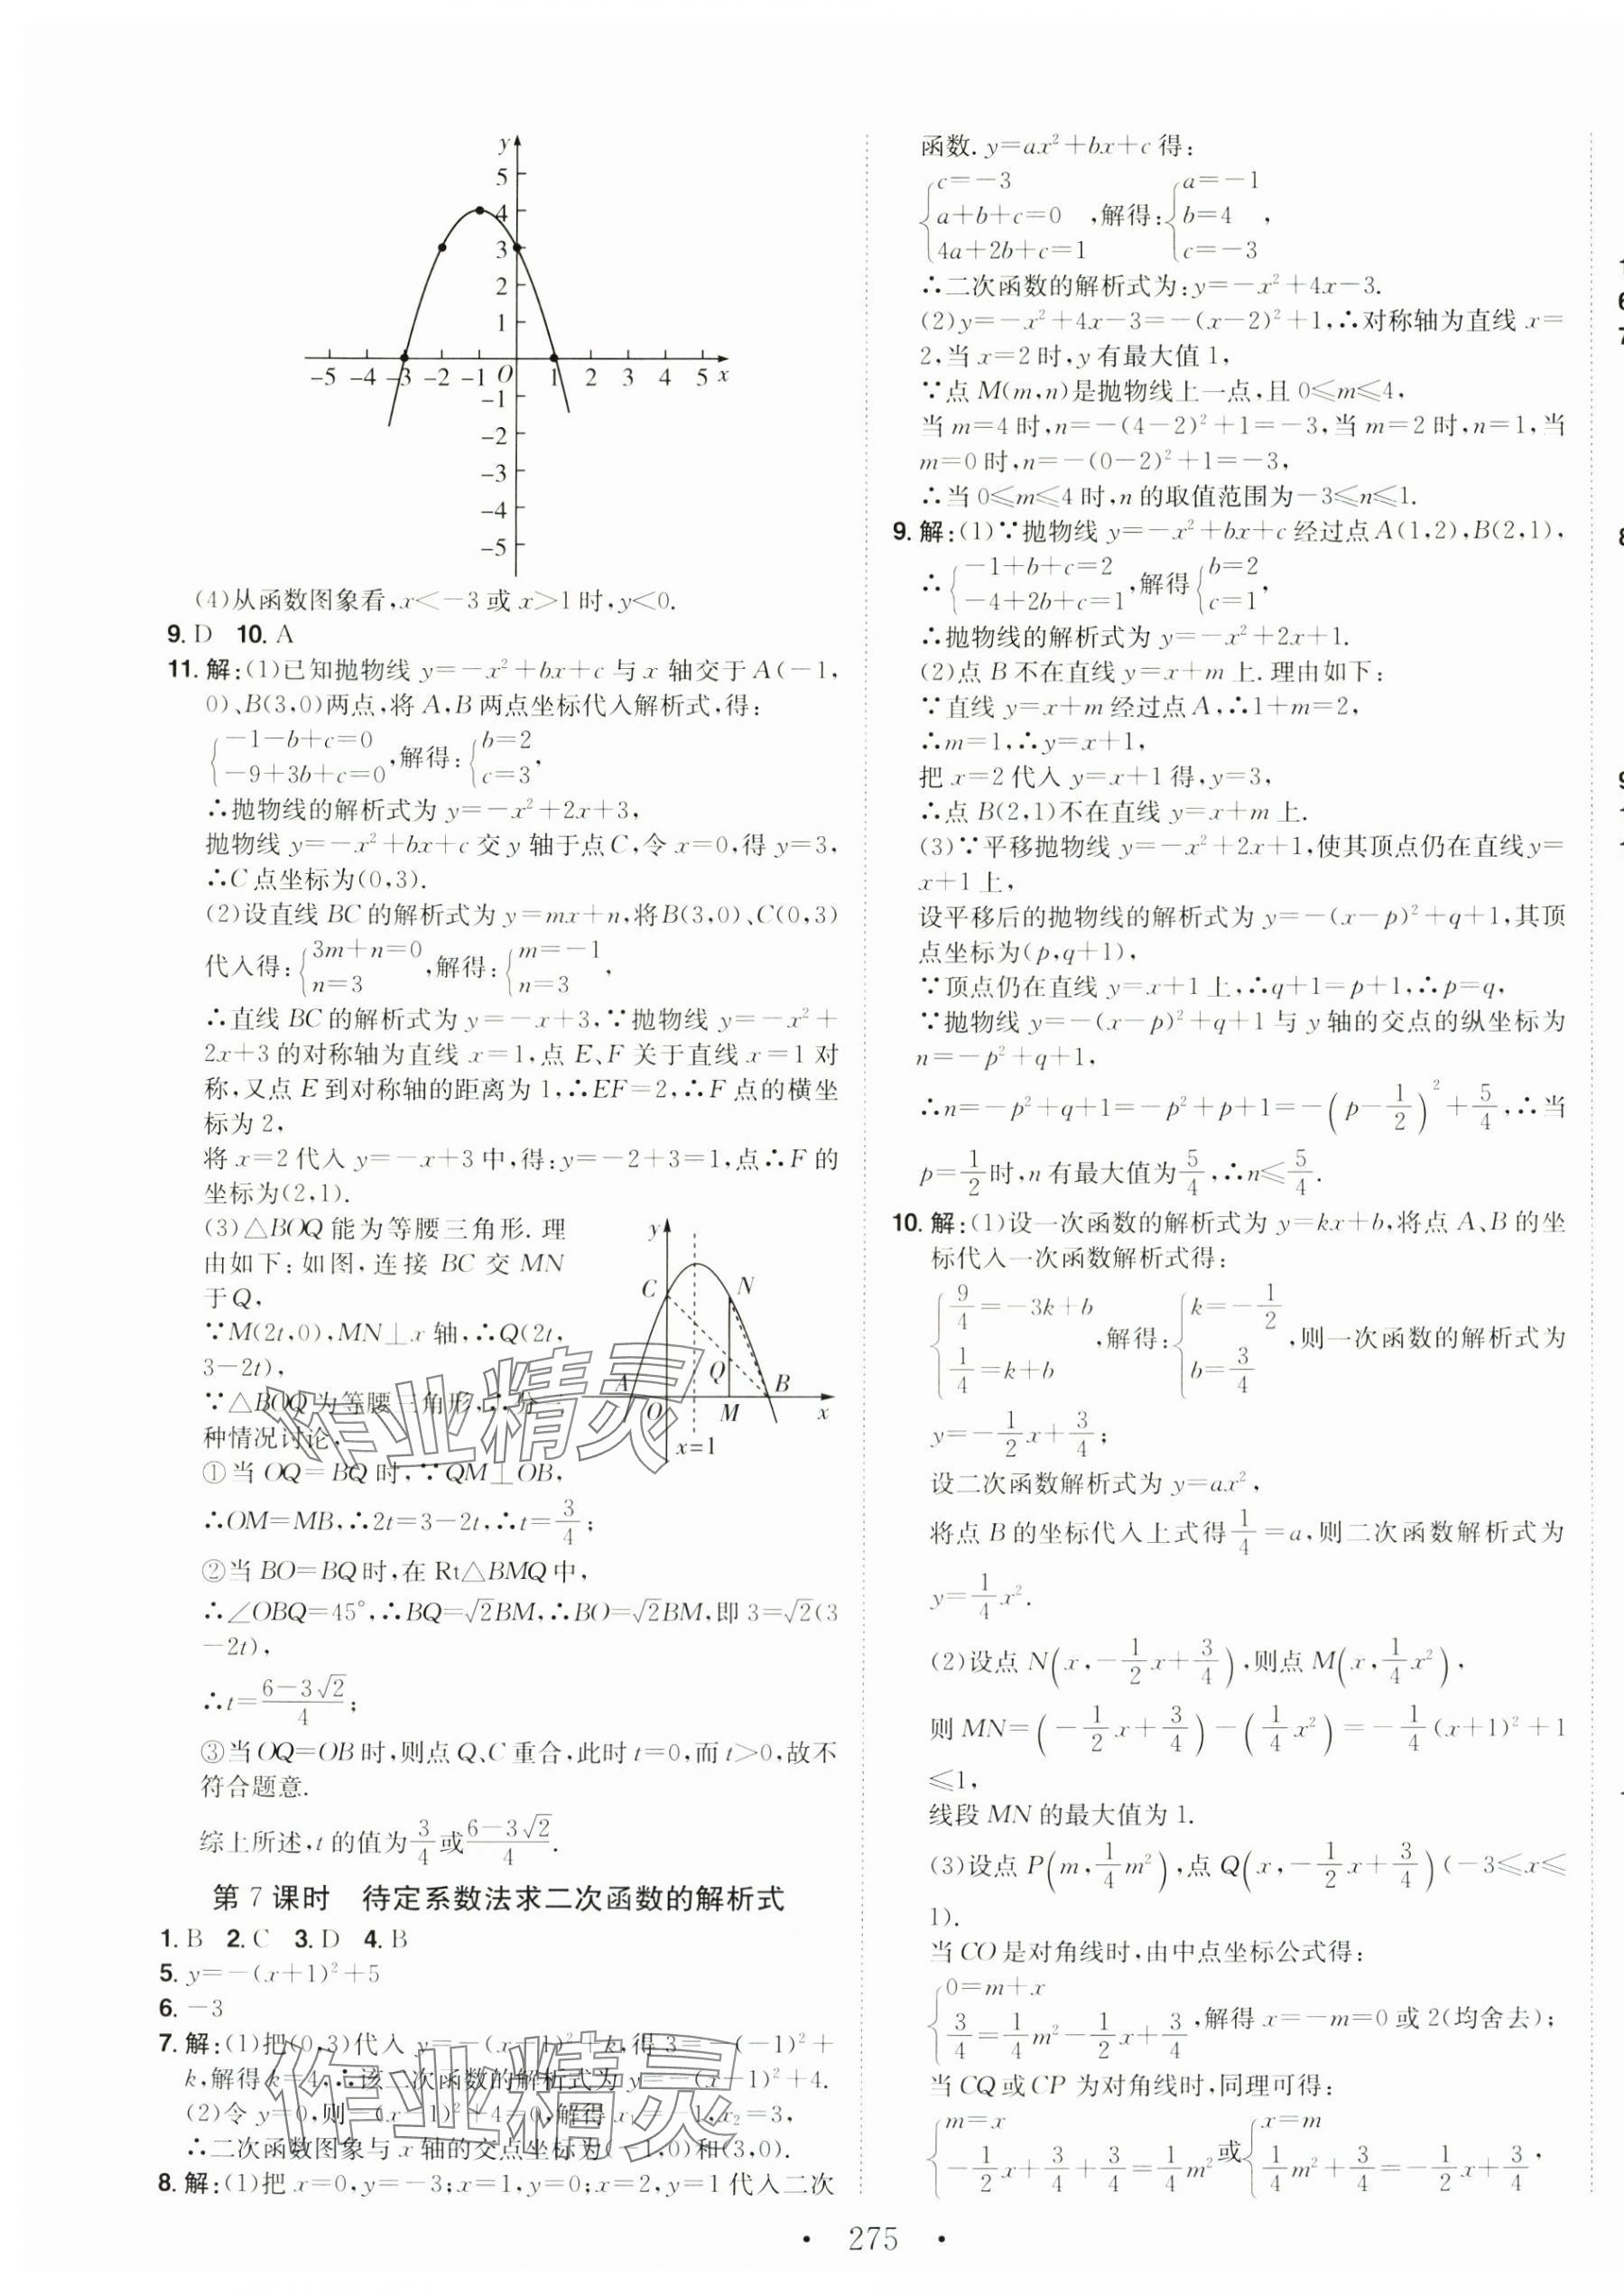 y
5
4
3
2
1
-5 -4 -3 -2 -1 O 1 2 3 4 5 x
-1
-2
-3
-4
-5
(4)从函数图象看,x<-3或x>1时,y<0.
9. D 10. A
11. 解:(1)已知抛物线 y=-x²+bx+c 与 x 轴交于 A(-1,
0)、B(3,0)两点,将 A,B 两点坐标代入解析式,得:
{-1-b+c=0
-9+3b+c=0 ,解得:{b=2
c=3,
∴抛物线的解析式为 y=-x²+2x+3,
抛物线 y=-x²+bx+c 交 y 轴于点 C,令 x=0,得 y=3,
∴C 点坐标为(0,3).
(2)设直线 BC 的解析式为 y=mx+n,将B(3,0)、C(0,3)
代入得:{3m+n=0
n=3 ,解得:{m=-1
n=3 ,
∴直线 BC 的解析式为 y=-x+3,∵抛物线 y=-x²+
2x+3 的对称轴为直线 x=1,点 E、F 关于直线 x=1 对
称,又点 E 到对称轴的距离为 1,∴EF=2,∴F 点的横坐
标为 2,
将 x=2 代入 y=-x+3 中,得:y=-2+3=1,点∴F 的
坐标为(2,1).
(3)△BOQ 能为等腰三角形. 理
由如下:如图,连接 BC 交 MN
于 Q,
∵M(2t,0),MN⊥x 轴,∴Q(2t,
3-2t),
∵△BOQ 为等腰三角形,∴分三
种情况讨论,
y
C N
Q
A B
O M x
x=1
①当 OQ=BQ 时,∵QM⊥OB,
∴OM=MB,∴2t=3-2t,∴t=3/4;
②当 BO=BQ 时,在 Rt△BMQ 中,
∴∠OBQ=45°,∴BQ=√2BM,∴BO=√2BM,即 3=√2(3
-2t),
∴t=(6-3√2)/4;
③当 OQ=OB 时,则点 Q、C 重合,此时 t=0,而 t>0,故不
符合题意.
综上所述,t 的值为 3/4 或 (6-3√2)/4.
第 7 课时 待定系数法求二次函数的解析式
1. B 2. C 3. D 4. B
5. y=-(x+1)²+5
6. -3
7. 解:(1)把(0,3)代入 y=-(x-1)²+k,得 3=-(-1)²+
k,解得 k=4,∴该二次函数的解析式为 y=-(x-1)²+4.
(2)令 y=0,则-(x-1)²+4=0,解得 x₁=-1,x₂=3,
∴二次函数图象与 x 轴的交点坐标为(-1,0)和(3,0).
8. 解:(1)把 x=0,y=-3;x=1,y=0;x=2,y=1 代入二次
函数. y=ax²+bx+c 得:
{c=-3
a+b+c=0
4a+2b+c=1 ,解得:{a=-1
b=4
c=-3 ,
∴二次函数的解析式为:y=-x²+4x-3.
(2)y=-x²+4x-3=-(x-2)²+1,∴对称轴为直线 x=
2,当 x=2 时,y 有最大值 1,
∵点 M(m,n)是抛物线上一点,且 0≤m≤4,
当 m=4 时,n=-(4-2)²+1=-3,当 m=2 时,n=1,当
m=0 时,n=-(0-2)²+1=-3,
∴当 0≤m≤4 时,n 的取值范围为-3≤n≤1.
9. 解:(1)∵抛物线 y=-x²+bx+c 经过点 A(1,2),B(2,1),
∴{-1+b+c=2
-4+2b+c=1 ,解得{b=2
c=1 ,
∴抛物线的解析式为 y=-x²+2x+1.
(2)点 B 不在直线 y=x+m 上. 理由如下:
∵直线 y=x+m 经过点 A,∴1+m=2,
∴m=1,∴y=x+1,
把 x=2 代入 y=x+1 得,y=3,
∴点 B(2,1)不在直线 y=x+m 上.
(3)∵平移抛物线 y=-x²+2x+1,使其顶点仍在直线y=
x+1 上,
设平移后的抛物线的解析式为 y=-(x-p)²+q+1,其顶
点坐标为(p,q+1),
∵顶点仍在直线 y=x+1 上,∴q+1=p+1,∴p=q,
∵抛物线 y=-(x-p)²+q+1 与 y 轴的交点的纵坐标为
n=-p²+q+1,
∴n=-p²+q+1=-p²+p+1=-(p-1/2)²+5/4,∴当
p=1/2 时,n 有最大值为 5/4,∴n≤5/4.
10. 解:(1)设一次函数的解析式为 y=kx+b,将点 A、B 的坐
标代入一次函数解析式得:
{9/4=-3k+b
1/4=k+b ,解得:{k=-1/2
b=3/4 ,则一次函数的解析式为
y=-1/2x+3/4;
设二次函数解析式为 y=ax²,
将点 B 的坐标代入上式得 1/4=a,则二次函数解析式为
y=1/4x².
(2)设点 N(x,-1/2x+3/4),则点 M(x,1/4x²),
则 MN=(-1/2x+3/4)-(1/4x²)=-1/4(x+1)²+1
≤1,
线段 MN 的最大值为 1.
(3)设点 P(m,1/4m²),点 Q(x,-1/2x+3/4)(-3≤x≤
1).
当 CO 是对角线时,由中点坐标公式得:
{0=m+x
3/4=1/4m²-1/2x+3/4 ,解得 x=-m=0 或 2(均舍去);
当 CQ 或 CP 为对角线时,同理可得:
{m=x
-1/2x+3/4+3/4=1/4m² 或{x=m
1/4m²+3/4=-1/2x+3/4 ,
• 275 •
作业精灵
作业精灵